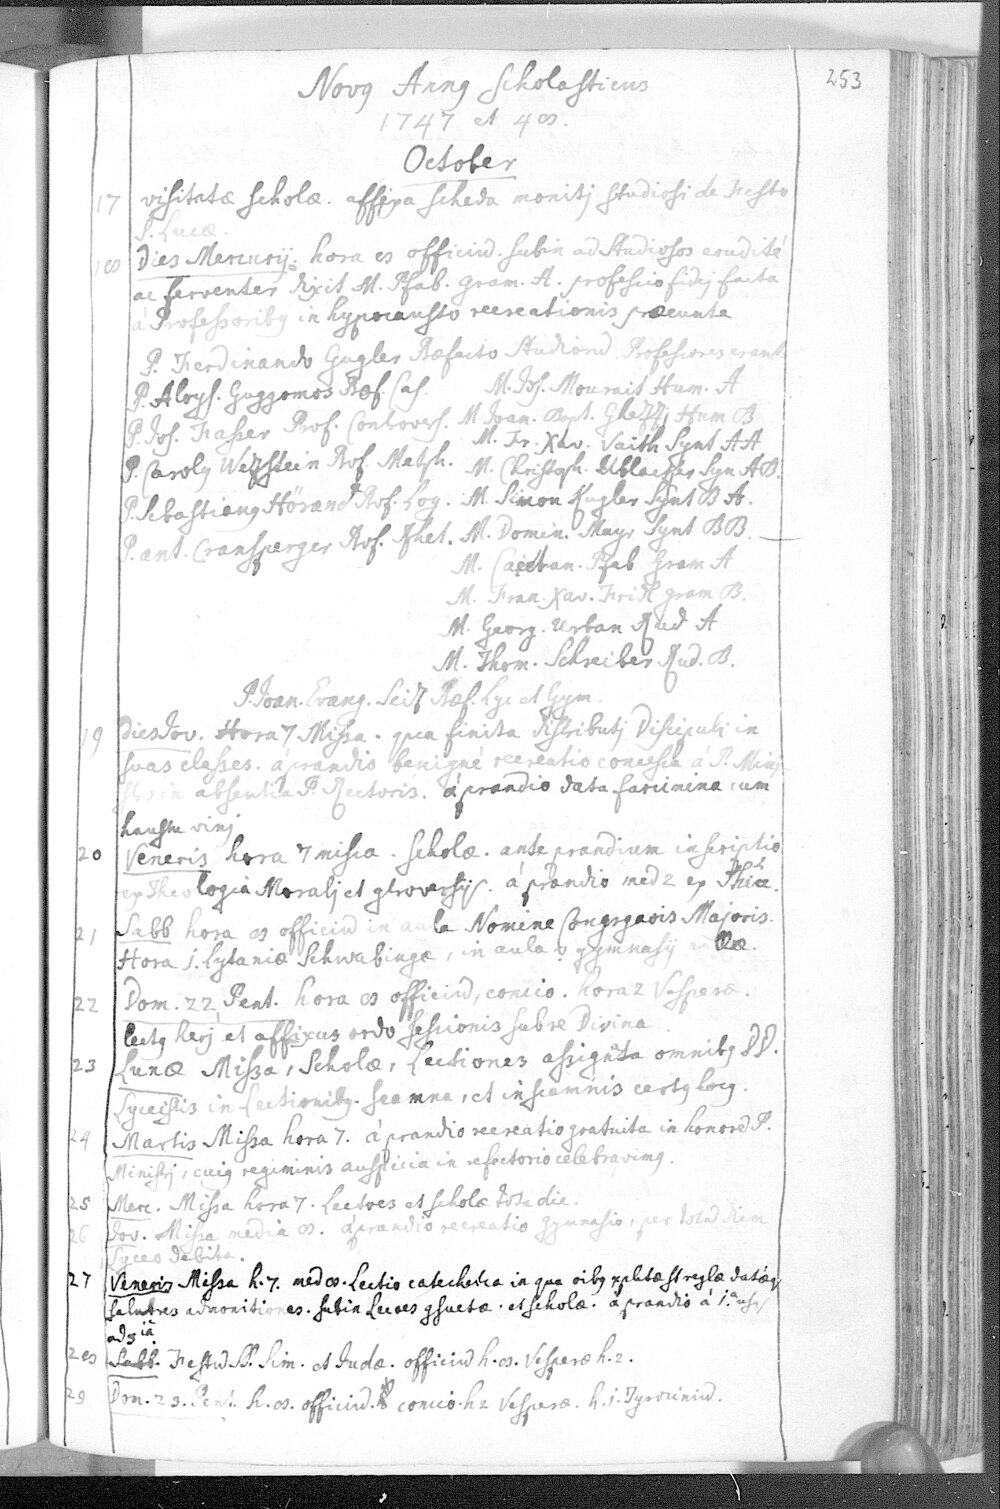 253
Novꝰ Annꝰ Scholasticus
1747 et 48.
October
17 visitatæ scholæ. affixa scheda monitj studiosi de Festo
S. Lucæ.
18 Dies Mercurij. hora 8 officiū. subin ad studiosos eruditè
ac ferventer dixit M. Pfab. Gram. A. professio fidej facta
á Professoribꝰ in hypocausto recreationis præeunte
P. Ferdinando Gugler Præfecto Studiorū. Professores erant.
P. Aloys. Guggomos Prof. Cas. M. Jos. Mourait Hum. A
P. Jos. Fasser Prof. Controvers. M. Joan. Bapt. Hum B
P. Carolꝰ Wetzstein Prof. Metph. M. Fr. Xav. Vaith Synt AA
P. Sebastianꝰ Hörand Prof. Log. M. Christoph. Ublacker Syn AB.
P. ant. Cransperger Prof. Rhet. M. Simon Kugler Synt B A.
M. Domin. Mayr Synt BB.
M. Caietan. Pfab Gram A
M. Fran. Xav. gram B.
M. Georg. Urban Rud A
M. Thom. Schreiber Rud. B.
P. Joan. Evang. Seiz Præf. Lyc et Gym.
19 dies Jov. Hora 7 Missa. qua finita distributj Discipulj in
suas classes. á prandio benignè recreatio concessa á P. Mini-
stro in absentia P. Rectoris. á prandio data farcimina cum
haustu vinj
20 Veneris hora 7 missa. scholæ. ante prandium inscriptio
ex Theologia Moralj et á prandio med 2 ex
21 Sabb hora 8 officiū in aula Nomine Congrgaōis Majoris.
Hora 1. Lytaniæ Schwabingæ, in aula gymnasij nullæ.
22 Dom. 22 Pent. hora 8 officiū, concio. hora 2 Vesperæ.
lectꝰ herj et affixus ordo sessionis sub re Divina.
23 Lunæ Missa, Scholæ, Lectiones assignata omnibꝰ DD.
Lyceistis in Lectionibꝰ. scamna, et in scamnis certꝰ locꝰ.
24 Martis Missa hora 7. á prandio recreatio gratuita in honorē P.
Ministrj, cuiꝰ regiminis auspicia in refectorio celebravimꝰ.
25 Merc. Missa hora 7. Lectōes et scholæ tota die.
26 Jov. Missa media 8. á prandio recreatio gymnasio, per totū diem
Lyceo debita.
27 Veneris Missa h. 7. med 8. Lectio catechetica in qua oībꝰ reglæ datæq
salutres admonitiones. subin Lecōes ꝯsuetæ. et scholæ. á prandio á 1.ᵃ usqꝫ
ad 3 iā.
28 Sabb. Festū SS. Sim. et Judæ. officiū h. 8. Vesperæ h. 2.
29 Dom. 23. Pent. h. 8. officiū. concio. h 2 Vesperæ. h. 1. Tyrociniū.